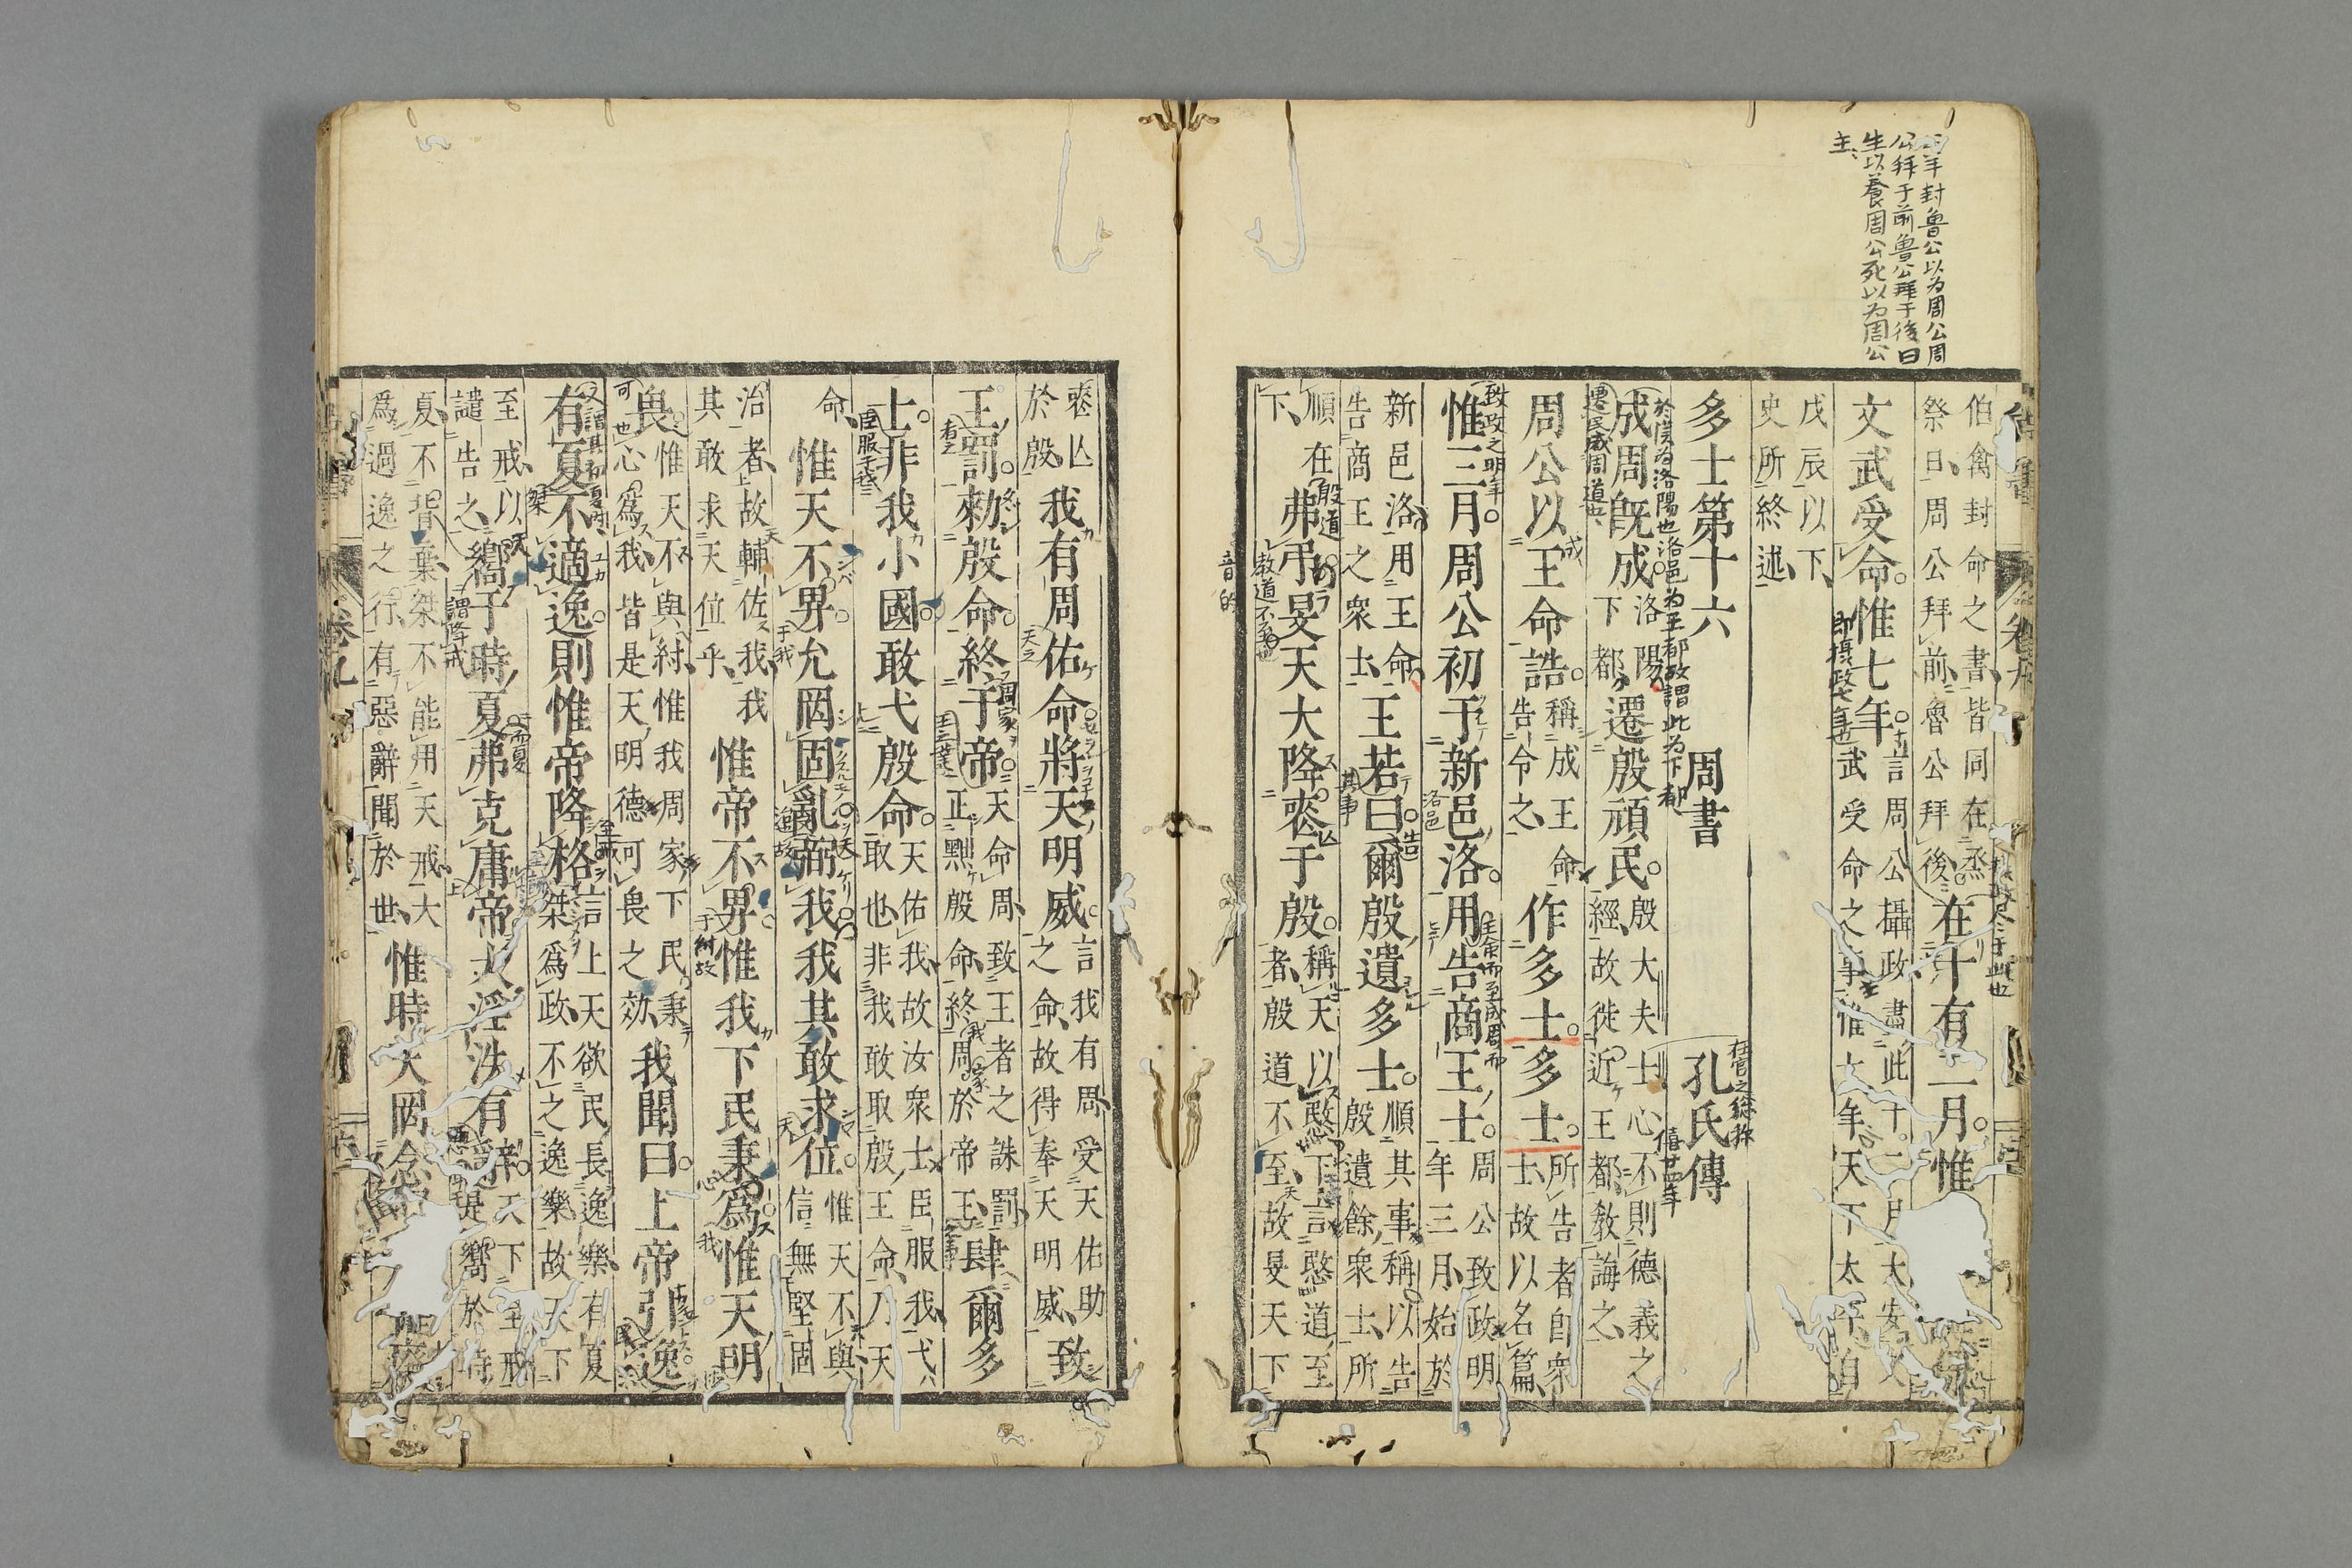 羊封魯公以为周公周
公拜于前魯公拜于後曰
生以養周公死以为周公
主
伯禽封命之書皆同在烝
祭日周公拜前魯公拜後
在十有二月惟
文武受命惟七年
言周公攝政盡此十二月大安文
武受命之事惟七年天下太平自
即攝政七年也
戊辰以下
史所終述
多士第十六 周書 孔氏傳
於漢为洛陽也洛邑为王都故謂此为下都
成周旣成
洛陽
下都
遷殷頑民
殷大夫士心不則德義之
經故徙近王都敎誨之
遷民成周道也
周公以王命誥
稱成王命
告令之
作多士多士
所告者卽衆
士故以名篇
致政之明年
惟三月周公初于新邑洛用告商王士
周公致政明
年三月始於
新邑洛用王命
告商王之衆士
王若曰爾殷遺多士
順其事稱以告
殷遺餘衆士所
順在
下
弗弔旻天大降喪于殷
稱天以愍下言愍道至
者殷道不至故旻天下
教道不至也
音的
喪亡
於殷
我有周佑命將天明威
言我有周受天佑助
之命故得奉天明威
致
王罰勑殷命終于帝
天命周致王者之誅罰
正黜殷命終周於帝王
肆爾多
士非我小國敢弋殷命
天佑我故汝衆士臣服我弋
取也非我敢取殷王命乃天
臣服于我
命
惟天不畀允罔固亂弼我我其敢求位
惟天不與
信無堅固
治者故輔佐我我
其敢求天位乎
惟帝不畀惟我下民秉爲惟天明
畏
惟天不與紂惟我周家下民秉
心爲我皆是天明德可畏之效
我聞曰上帝引逸
有夏不適逸則惟帝降格
言上天欲民長逸樂有夏
桀爲政不之逸樂故天下
至戒以
譴告之
嚮于時夏弗克庸帝大淫泆有辭
天下至戒
是嚮於時
夏不背棄桀不能用天戒大
爲過逸之行有惡辭聞於世
惟時天罔念
卷九